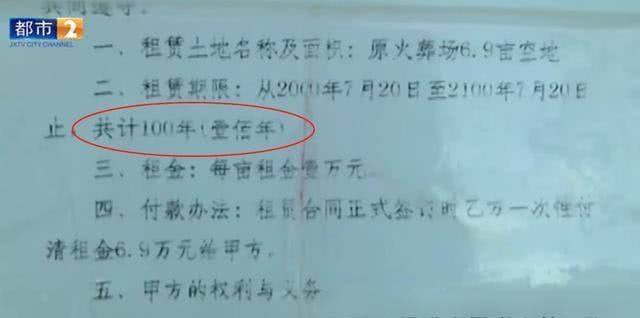 都市2
JXTV CITY CHANNEL
共同遵守。
一、租赁土地名称及面积：原火葬场6.9亩空地
二、租赁期限：从2000年7月20日至2100年7月20日
止，共计100年（壹佰年）
三、租金：每亩租金壹万元
四、付款办法：租赁合同正式签订时乙方一次性付
清租金6.9万元给甲方。
五、甲方的权利与义务